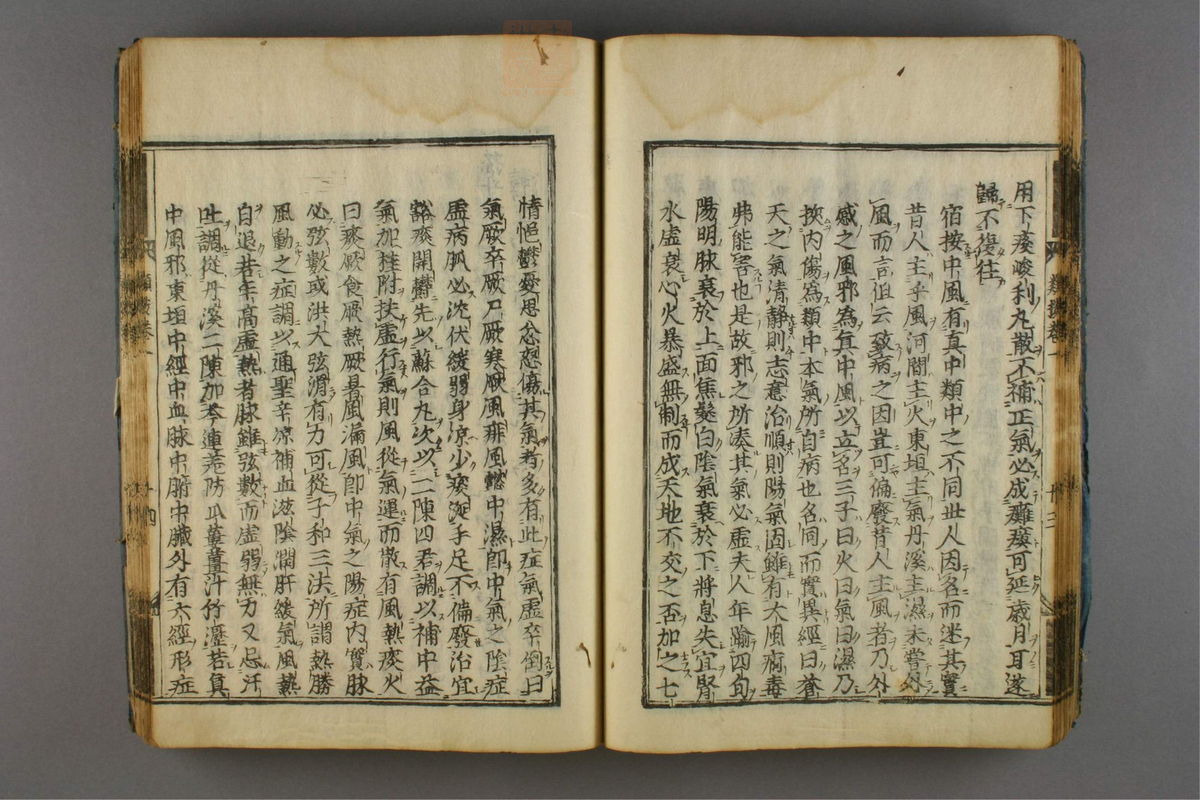 用下痰峻利丸散不補正氣必成癱瘓可延歳月耳遂
歸不復往
宿按中風有真中類中之不同世人因名而迷其實
昔人主乎風河間主火東垣主氣丹溪主濕未嘗外
風而言但云致病之因豈可偏廢昔人主風者乃外
感之風邪為真中風以立名三子曰火曰氣曰濕乃
挾內傷為類中本氣所自病也名同而實異經曰蒼
天之氣清靜則志意治順則陽氣固雖有大風苛毒
弗能害也是故邪之所湊其氣必虛夫人年踰四旬
陽明脉衰於上面焦髮白陰氣衰於下將息失宜腎
水虛衰心火暴盛無制而成天地不交之否加之七
類 卷一
十三
情悒鬱憂思忿怒傷其氣者多有此症氣虛卒倒曰
氣厥卒厥尸厥寒厥風痱風懿中濕卽中氣之陰症
虛病肌必沈伏緩弱身凉少痰涎手足不偏廢治宜
豁痰開鬱先以蘇合丸次以二陳四君調以補中益
氣加桂附扶虛行氣則風從氣運而散有風熱痰火
曰痰厥食厥熱厥暑風漏風卽中氣之陽症內實脉
必弦數或洪大弦滑有力可從子和三法所謂熱勝
風動之症調以通聖辛凉補血滋陰潤肝緩氣風熱
自退若年高虛熱者脉雖弦數而虛弱無力又忌汗
吐調從丹溪二陳加芩連羌防瓜蔞薑汁竹瀝若真
中風邪東垣中經中血脉中腑中臟外有六經形症
類 卷一
十四